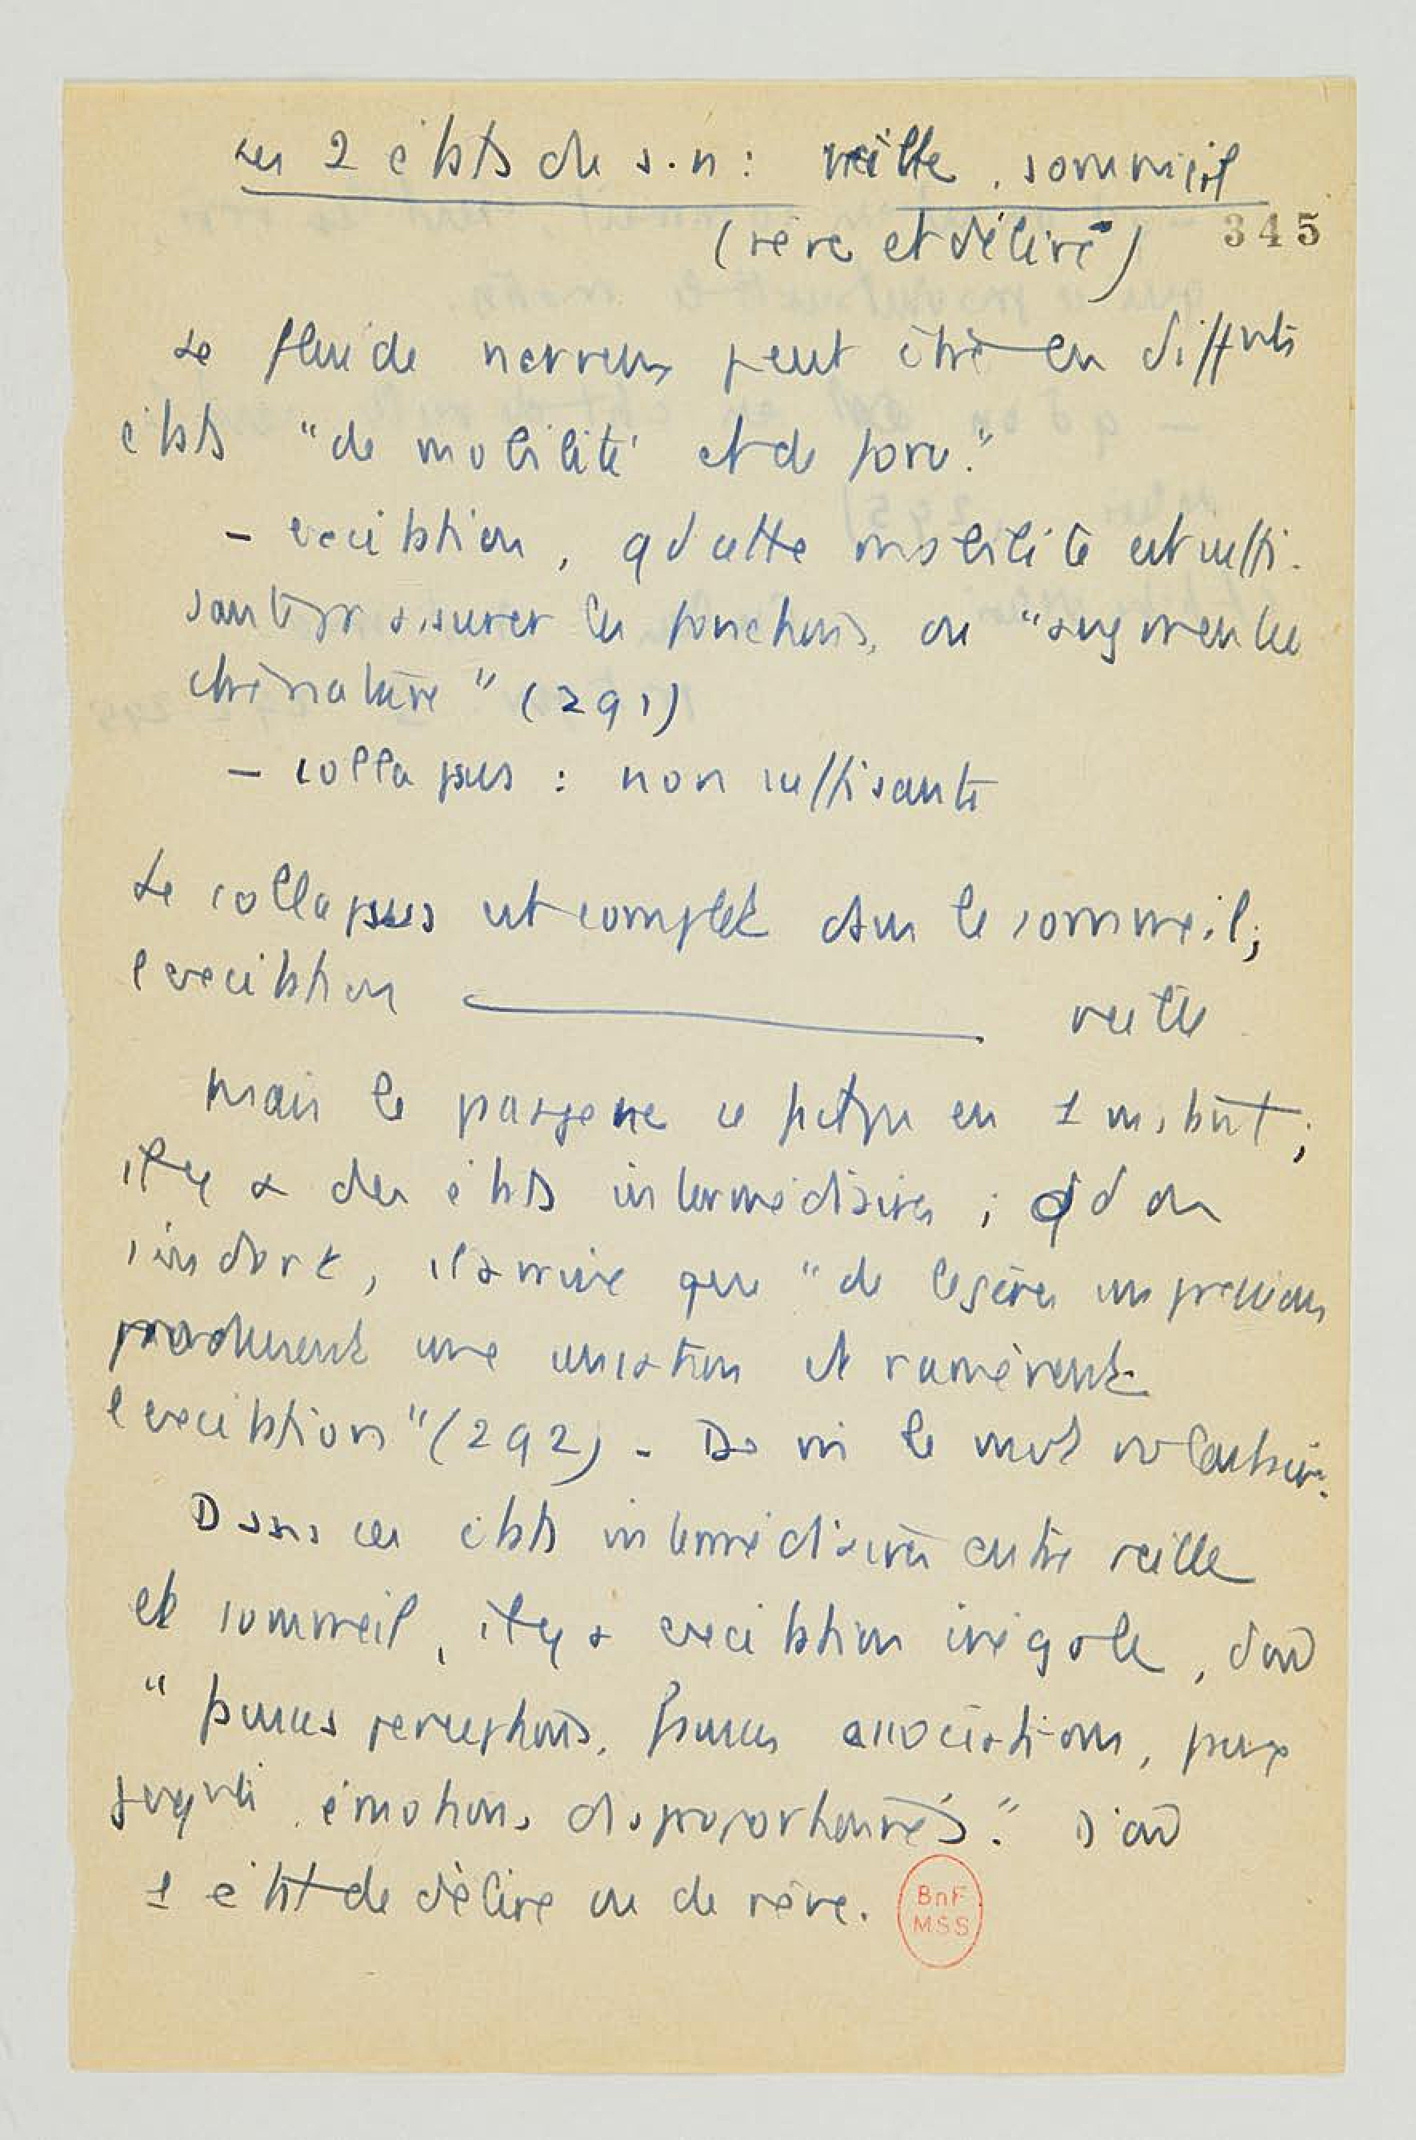 Les 2 états du s.n : veille, sommeil
345
(rêve et délire)
Le fluide nerveux peut être en diffnts
états "de mobilité et de force."
- excitation, qd cette mobilité est suffi-
sante pr assurer les fonctions, ou "augmentée
contre nature" (291)
- collapsus : non suffisante
Le collapsus est complet dans le sommeil ;
l'excitation ——— veille
Mais le passage ne se fait pas en 1 instant ;
il y a des états intermédiaires ; qd on
s'endort, il arrive que "de légères impressions
produisent une sensation et ramènent
l'excitation" (292) - De mi le mot volontaire.
Dans ces états intermédiaires entre veille
et sommeil, il y a excitation inégale, d'où
"fausses perceptions, fausses associations, par
séqnt émotions disproportionnées." D'où
1 état de délire ou de rêve.
BnF
MSS